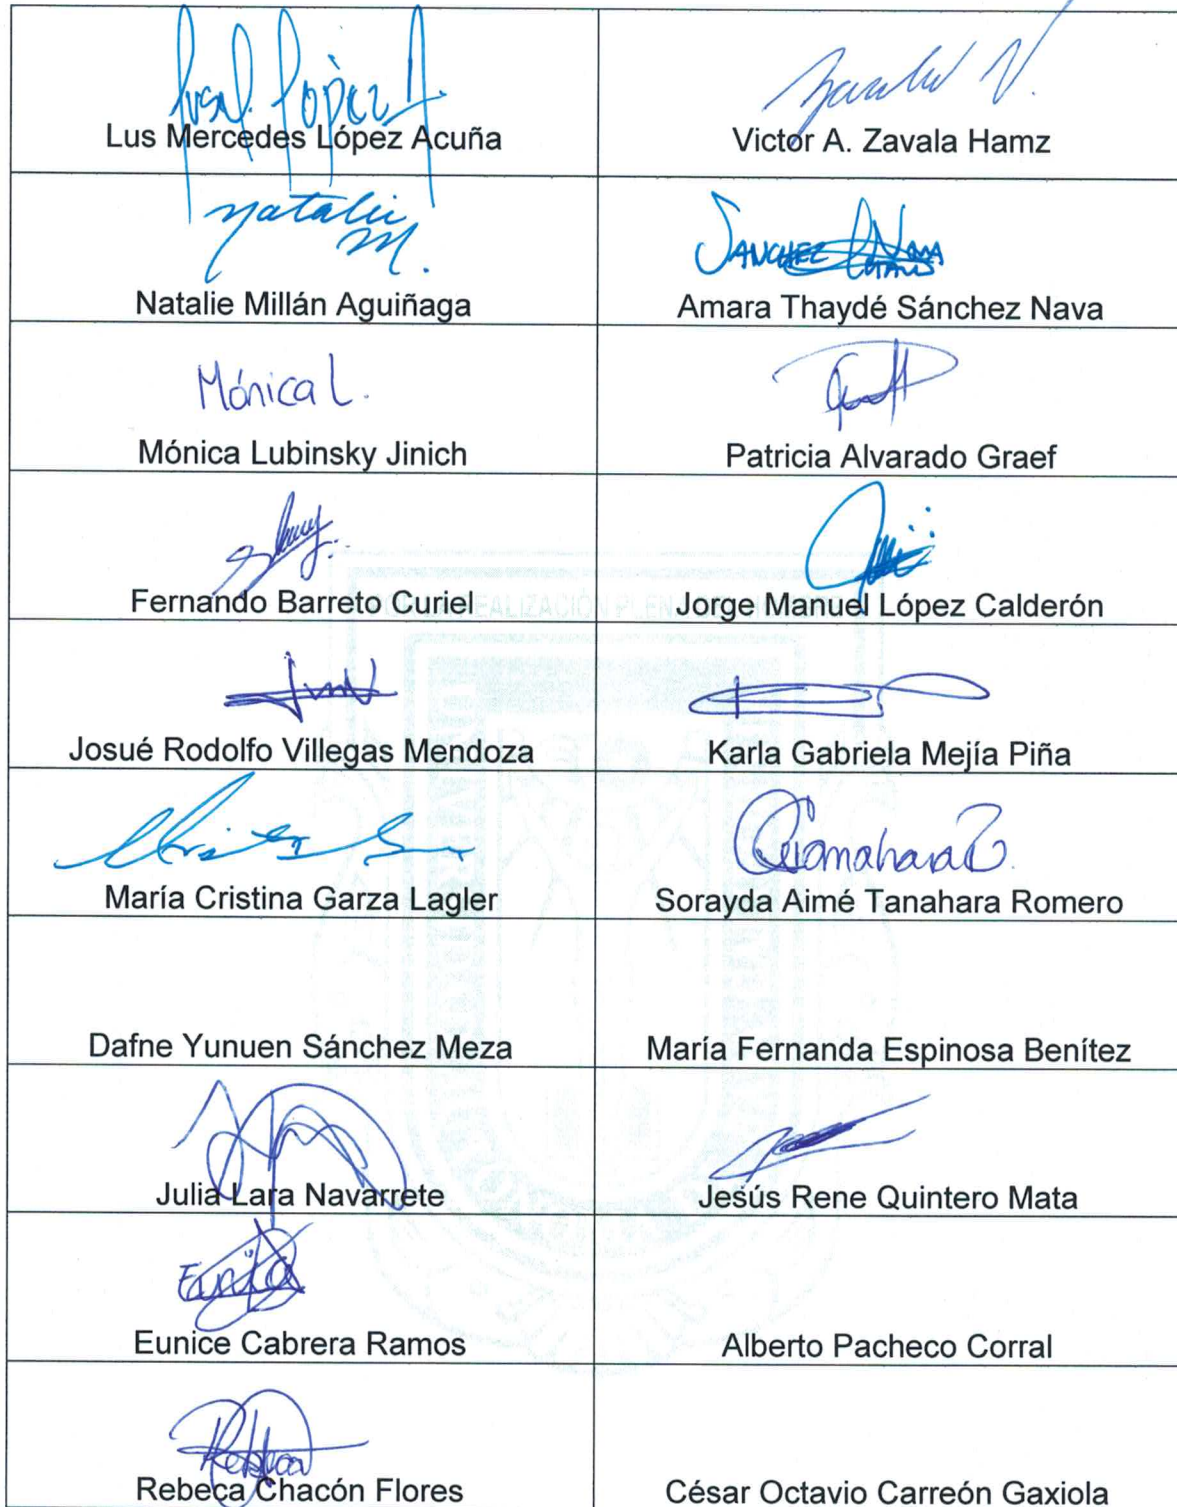 Lus M. López A.
Lus Mercedes López Acuña
Zavala V.
Victor A. Zavala Hamz
Natalie M.
Natalie Millán Aguiñaga
SANCHEZ NAVA
Amara Thaydé Sánchez Nava
Mónica L.
Mónica Lubinsky Jinich
Patricia Alvarado Graef
Fernando Barreto Curiel
REALIZACIÓN PLENA
Jorge Manuel López Calderón
Josué Rodolfo Villegas Mendoza
Karla Gabriela Mejía Piña
María Cristina Garza Lagler
Sorayda Aimé Tanahara Romero
Dafne Yunuen Sánchez Meza
María Fernanda Espinosa Benítez
Julia Lara Navarrete
Jesús Rene Quintero Mata
Eunice Cabrera Ramos
Alberto Pacheco Corral
Rebeca Chacón Flores
César Octavio Carreón Gaxiola